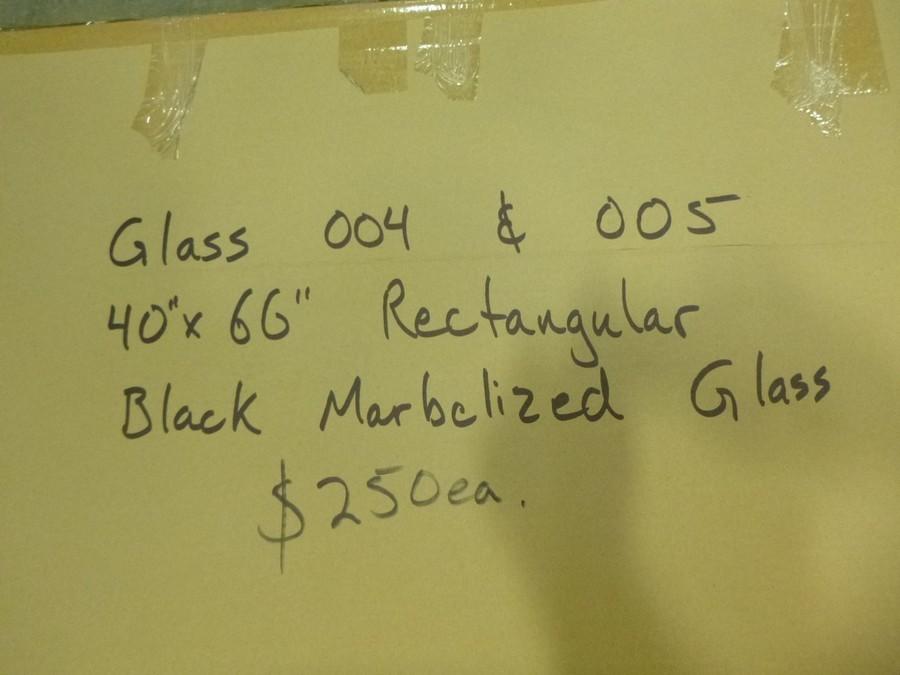 Glass 004 & 005
40"x 66" Rectangular
Black Marbelized Glass
$250ea.